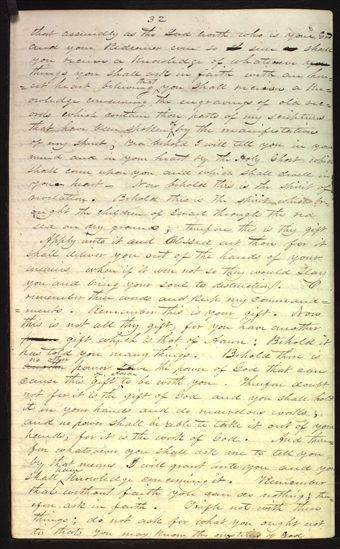 32
that assuredly as the Lord liveth who is your God
and your Redeemer even so sure shall
you receive a knowledge of whatsoever
things you shall ask in faith with an hon=
=est heart believing that you shall receive a kno
owledge concerning the engravings of old rec=
ords which contain those parts of my scripture
that have been spoken of by the manifestation
of my spirit; Yea behold I will tell you in your
mind and in your heart by the Holy Ghost which
shall come upon you and which shall dwell in
your heart — Now behold this is the spirit of
revelation. Behold this is the spirit which bro
ught the children of Israel through the red
sea on dry ground; therefore this is thy gift
Apply unto it and blessed art thou for it
shall deliver you out of the hands of your
enemies when if it were not so they would slay
you and bring your soul to distruction. O
remember these words and keep my command=
=ments. Remember this is your gift. Now
this is not all thy gift, for you have another
gift which is that of Aaron: Behold it
has told you many things. Behold there is
no other power save the power of God that can
cause this gift of Aaron to be with you. Therefore doubt
not for it is the gift of God and you shall hold
it in your hands and do marvelous works;
and no power shall be able to take it out of your
hands; for it is the work of God. And there
fore whatsoever you shall ask me to tell you
by that means I will grant unto you and you
shall have knowledge concerning it. Remember
that without faith you can do nothing; the
efore ask in faith. Trifle not with these
things; do not ask for what you ought not
that you may know the mysteries of God